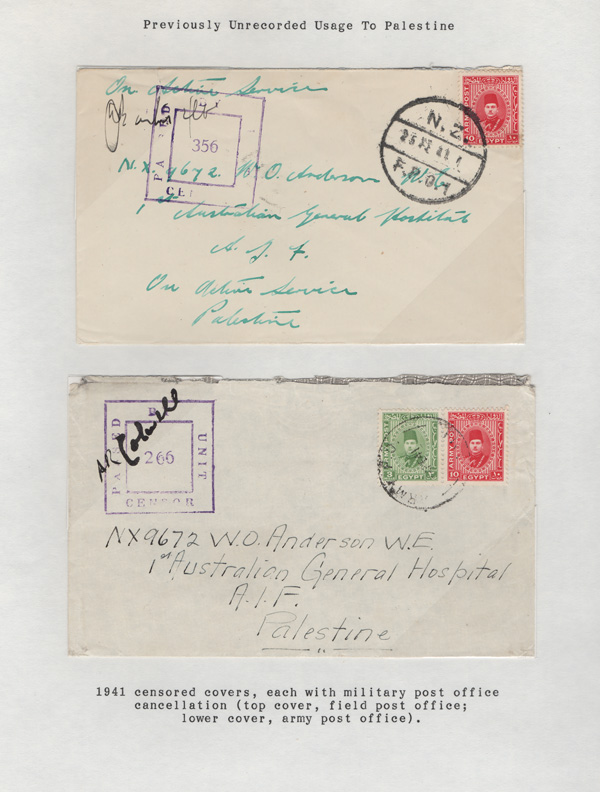 Previously Unrecorded Usage To Palestine
On Active Service
PA ED
356
CEN
ARMY POST
10
EGYPT
N.Z.
F.P.O.
NX 9672. W. O. Anderson W. E.
1st Australian General Hospital
A. I. F.
On Active Service
Palestine
PASSED
UNIT
266
CENSOR
A R Colwill
EGYPT
ARMY POST
10
EGYPT
ARM
NX9672 W.O. Anderson W.E.
1st Australian General Hospital
A.I.F.
Palestine
1941 censored covers, each with military post office
cancellation (top cover, field post office;
lower cover, army post office).